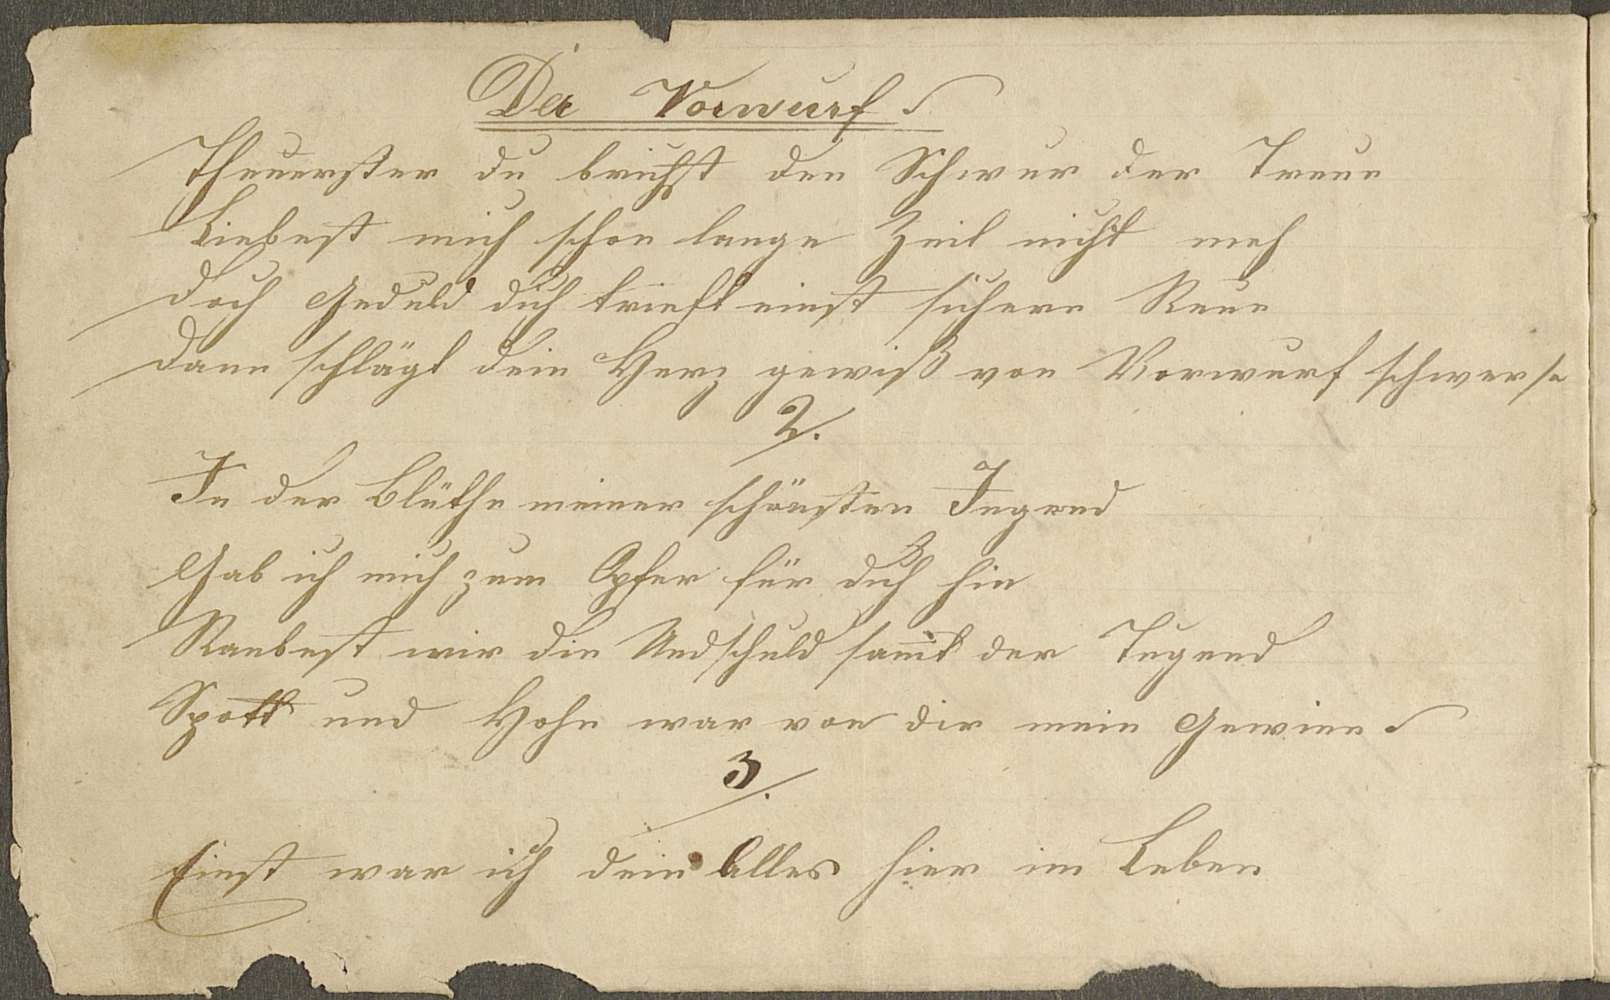 Der Vorwurf
Theuerster du brichst den Schwur der Treue
Liebest mich schon lange Zeit nicht meh
doch Geduld dich trieft einst sichere Reue
dann schlägt dein Herz gewiß von Vorwurf schwer
2.
In der Blüthe meiner schönsten Jugend
Gab ich mich zum Opfer für dich hin
Raubest mir die Undschuld samt der Tugend
Spott und Hohn war von dir mein Gewinn
3.
Einst war ich dein Alles hier im Leben